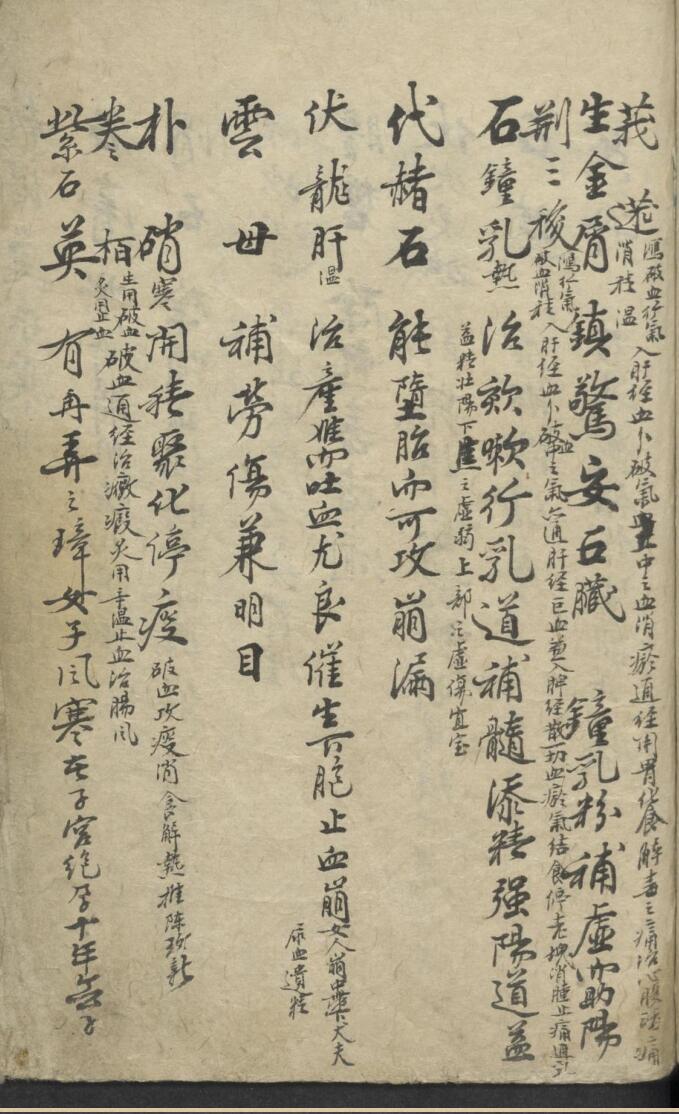 莪蒁 瀉破血行氣消積 温 入肝經血卜破氣中之血消瘀通經開胃化食解毒之痛治心腹諸痛
生金屑鎮驚安五臟 鐘乳粉補虛而助陽
荆三稜 瀉行氣破血消積 入肝經血卜破血之氣亦通肝經巨血兼入脾經散一切血瘀氣結食停老塊消腫止痛通乳
石鐘乳熱 治欬嗽行乳道補髓添精强陽道益
益精壯陽下焦之虛弱上部之虛傷宜宝
代赭石 能墮胎而可攻崩漏
伏龍肝温 治產難而吐血尤良催生下胞止血崩女人崩中帶下丈夫
尿血遺精
雲母 補勞傷兼明目
朴硝寒 開積聚化停痰 破血攻痰消食解熱推陈致新
卷栢 生用破血炙用止血 破血通經治癥瘕炙用辛温止血治腸风
紫石英 有再弄之璋女子风寒在子宮絕孕十年無子